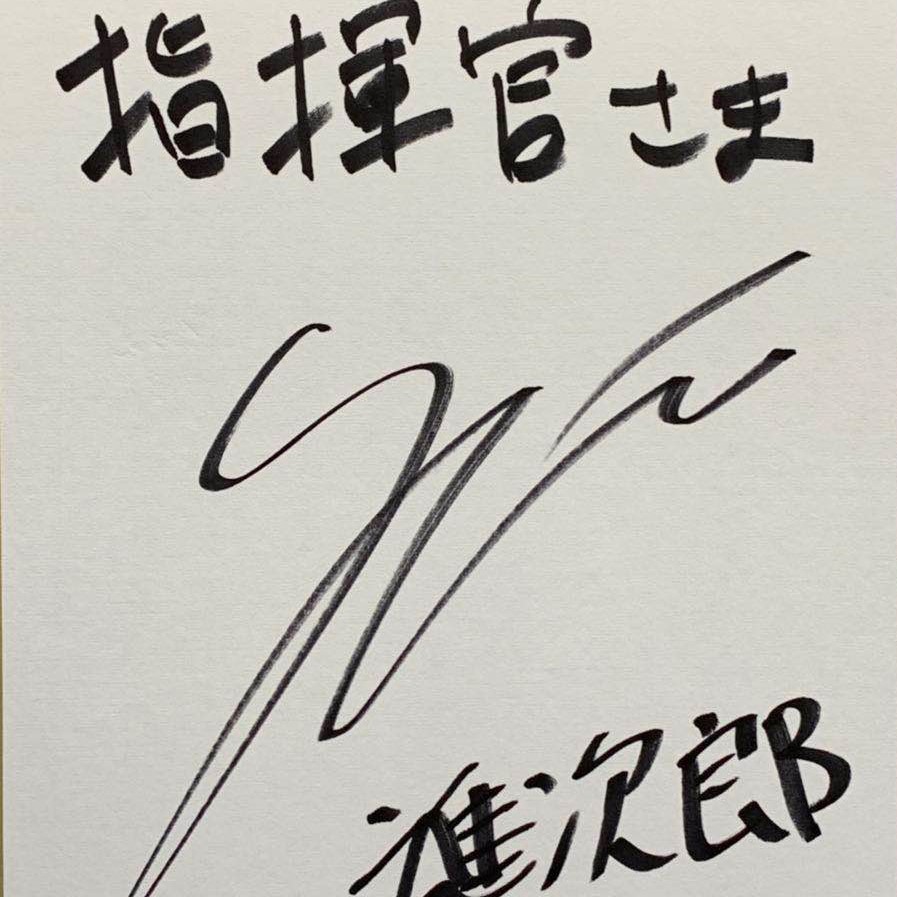 指揮官さま
進次郎